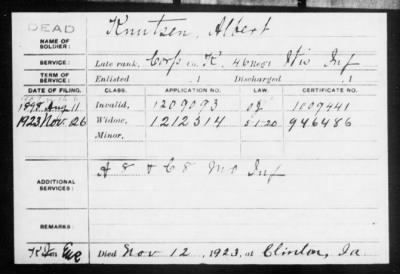 DEAD
NAME OF SOLDIER: Knutsen, Albert
SERVICE: Late rank, Corp Co. K, 46 Reg't Wis Inf
TERM OF SERVICE: Enlisted , 1 Discharged , 1
DATE OF FILING. CLASS. APPLICATION NO. LAW. CERTIFICATE NO.
1898 Aug 11 Invalid, 1209093 1009441
1923 Nov. 26 Widow, 1212314 946486
Minor,
ADDITIONAL SERVICES: A 8 & C 8 Mo Inf
REMARKS:
Died Nov 12, 1923, at Clinton, Ia.